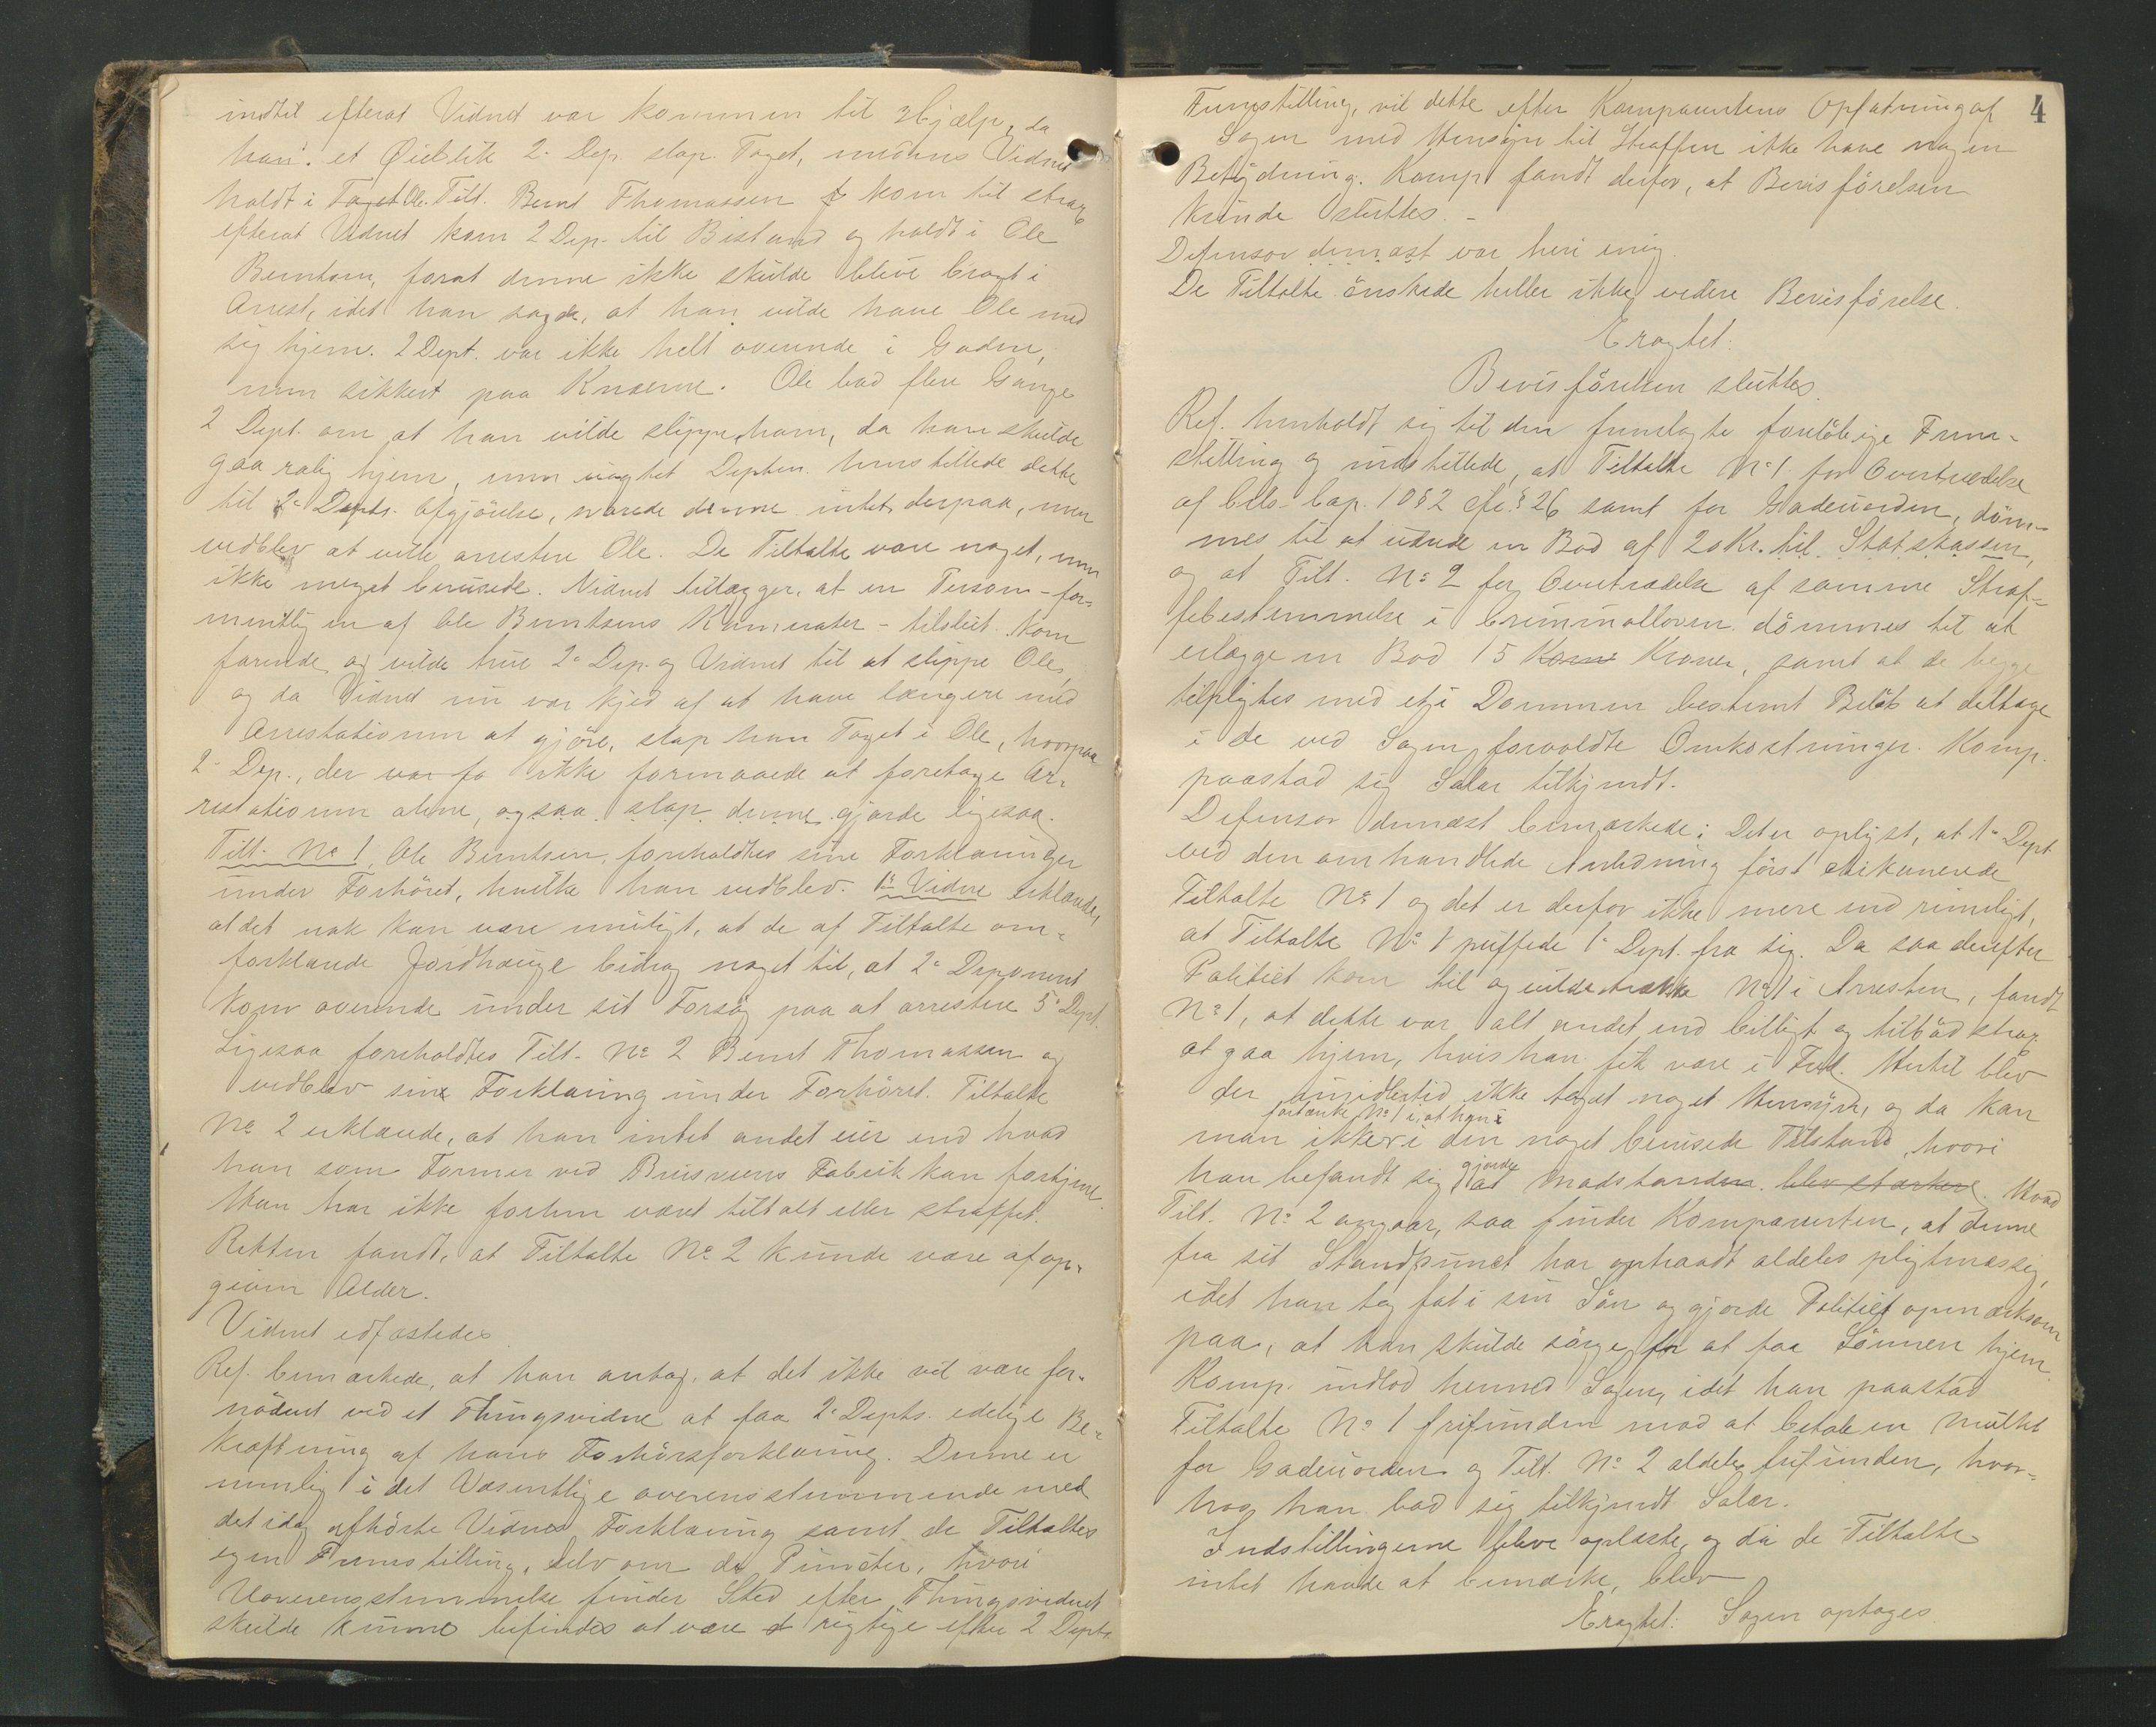 indtil efterat Vidnet var kommen til Hjælp, da
han et Øieblik 2. Dep. slap Taget, medens Vidnet
holdt i Taget Ole. Tilt. Bernt Thomassen kom til strax
efterat Vidnet kom 2 Dep. til Bistand og holdt i Ole
Berntsen, forat denne ikke skulde blive bragt i
Arrest, idet han sagde, at han vilde have Ole med
sig hjem. 2 Dept. var ikke helt overende i Gaden,
men sikkert paa Knæerne. Ole bad flere Gange
2 Dept. om at han vilde slippe ham, da han skulde
gaa rolig hjem, men uagtet Depten. henstillede dette
til 2den Depts. Afgjörelse, svarede denne intet derpaa, men
vedblev at ville arrestere Ole. De Tiltalte vare noget, men
ikke meget berusede. Vidnet tillægger, at en Person - for-
mentlig en af Ole Berntsens Kamerater - tilsidst kom
farende og vilde true 2den Dep. og Vidnet til at slippe Ole,
og da Vidnet nu var kjed af at have længere med
Arrestationen at gjöre, slap han Taget i Ole, hvorpaa
2den Dep., der var fo ikke formaaede at foretage Ar-
restationen alene, ogsaa slap denne gjorde ligesaa.
Tilt. No 1, Ole Berntsen, foreholdtes sine Forklaringer
under Forhöret, hvilke han vedblev. 1ste Vidne erklærede,
at det nok kan være muligt, at de af Tiltalte om-
forklarede Jordhauge bidrog noget til, at 2den Deponent
kom overende under sit Forsög paa at arrestere 5te Dept.
Ligesaa foreholdtes Tilt. No 2 Bernt Thomassen og
vedblev sin Forklaring under Forhöret. Tiltalte
No 2 erklærede, at han intet andet eier end hvad
han som Former ved Bruseruds Fabrik kan fortjene.
Han har ikke forhen været tiltalt eller straffet.
Retten fandt, at Tiltalte No 2 kunde være af op-
given Alder.
Vidnet edfæstedes
Ref. bemærkede, at han antog, at det ikke vil være for-
nödent ved et Thingsvidne at faa 2den Depts. edelige Be-
kræftning af hans Forhörsforklaring. Denne er
nemlig i det Væsentlige overensstemmende med
det idag afhörte Vidnes Forklaring samt de Tiltaltes
egen Fremstilling, selv om de Puncter, hvori
Uoverensstemmelse finder Sted efter Thingsvidnet
skulde kunne befindes at være rigtige efter 2 Depts.
4
Fremstilling, vil dette efter Komparentens Opfatning af
Sagen med Hensyn til Straffen ikke have nogen
Betydning. Komp. fandt derfor, at Bevisförelsen
kunde sluttes. -
Defensor dernæst var heri enig.
De Tiltalte önskede heller ikke videre Bevisförelse.
Eragtet:
Bevisförelsen sluttes.
Ref. henholdt sig til den fremlagte forelöbige Frem-
stilling og indstillede, at Tiltalte No 1 for Overtrædelse
af Crls. Cap. 10 § 2 cfr. § 26 samt for Gadeuorden, döm-
mes til at udrede en Bod af 20 Kr. til Statskassen,
og at Tilt. No 2 for Overtrædelse af samme Straf-
febestemmelse i Criminalloven dömmes til at
erlægge en Bod 15 Kroner, samt at de begge
tilpligtes med et i Dommen bestemt Belöb at deltage
i de ved Sagen forvoldte Omkostninger. Komp.
paastod sig Salær tilkjendt.
Defensor dernæst bemærkede: Det er oplyst, at 1ste Dept
ved den omhandlede Anledning först chikanerede
Tiltalte No 1 og det er derfor ikke mere end rimeligt,
at Tiltalte No 1 puffede 1ste Dept. fra sig. Da saa derefter
Politiet kom til og vilde trække No 1 i Arresten, fandt
No 1, at dette var alt andet end billigt og tilböd strax
at gaa hjem, hvis han fik være i Fred. Hertil blev
der imidlertid ikke taget noget Hensyn, og da kan
fortænke No 1 i, at han
man ikke i den noget berusede Tilstand, hvori
gjorde
han befandt sig at Modstanden blev stærkere. Hvad
Tilt. No 2 angaar, saa finder Komparenten, at denne
fra sit Standpunct har optraadt aldeles pligtmæssig,
idet han tog fat i sin Sön og gjorde Politiet opmærksom
paa, at han skulde sörge for at faa Sönnen hjem.
Komp. indlod hermed Sagen, idet han paastod
Tiltalte No 1 frifunden mod at betale en Mulkt
for Gadeuorden og Tilt. No 2 aldeles frifunden, hvor-
hos han bad sig tilkjendt Salær.
Indstillingerne bleve oplæste, og da de Tiltalte
intet havde at bemærke, blev
Eragtet: Sagen optages.